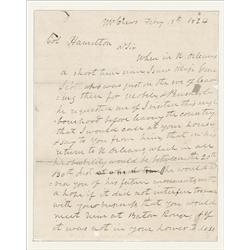 Feby 18th 1824
Col Hamilton
When in N. Orleans
a short time since
Scott who was just on the eve of leav
ing there for Mobile &
he requested me if I visited this neigh
bourhood before leaving the country
that I would call at your house
& say to you from him that on his
return to N Orleans which in all
probability would be between the 20th
& the
you of his future movements with
a hope if it did not interfere
with your business that you would
meet him at Baton Rouge, & if
it was not in your power to do so